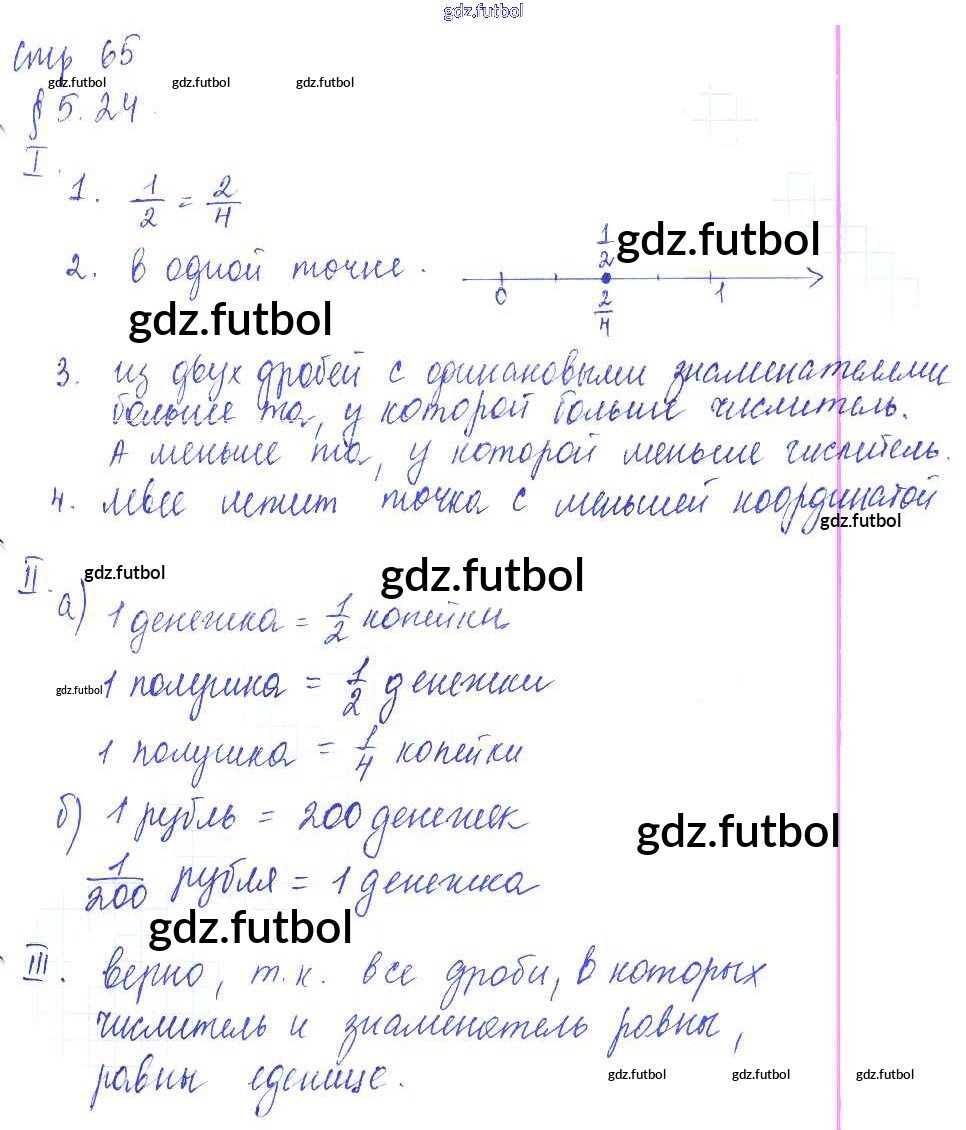 gdz.futbol
стр 65
gdz.futbol gdz.futbol gdz.futbol
§ 5.24.
I.
1. 1/2 = 2/4
2. в одной точке.
1/2 gdz.futbol
0 2/4 1
gdz.futbol
3. из двух дробей с одинаковыми знаменателями
больше та, у которой больше числитель.
А меньше та, у которой меньше числитель.
4. левее лежит точка с меньшей координатой
gdz.futbol
II. gdz.futbol gdz.futbol
а) 1 денежка = 1/2 копейки
gdz.futbol 1 полушка = 1/2 денежки
1 полушка = 1/4 копейки
б) 1 рубль = 200 денежек
gdz.futbol
1/200 рубля = 1 денежка
gdz.futbol
III. верно, т.к. все дроби, в которых
числитель и знаменатель равны,
равны еденице.
gdz.futbol gdz.futbol gdz.futbol